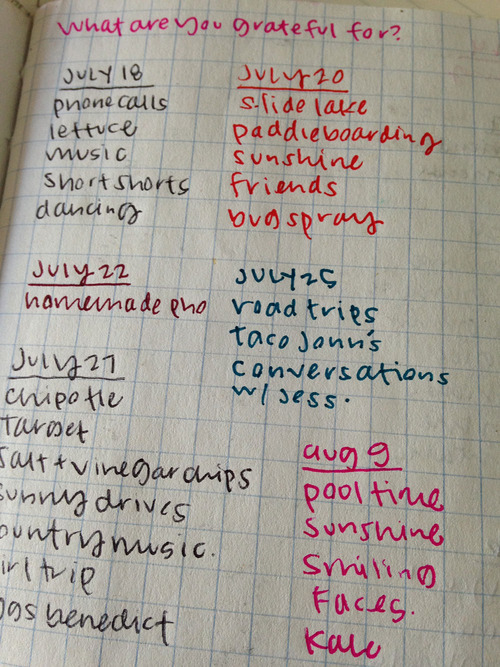 What are you grateful for?
JULY 18
phone calls
lettuce
music
short shorts
dancing
JULY 20
slide lake
paddleboarding
sunshine
friends
bug spray
JULY 22
homemade pho
JULY 25
road trips
taco john's
conversations
w/ jess.
JULY 27
chipotle
target
salt + vinegar chips
sunny drives
ountry music.
irl trip
ggs benedict
aug 9
pool time
sunshine
smiling
faces.
kale